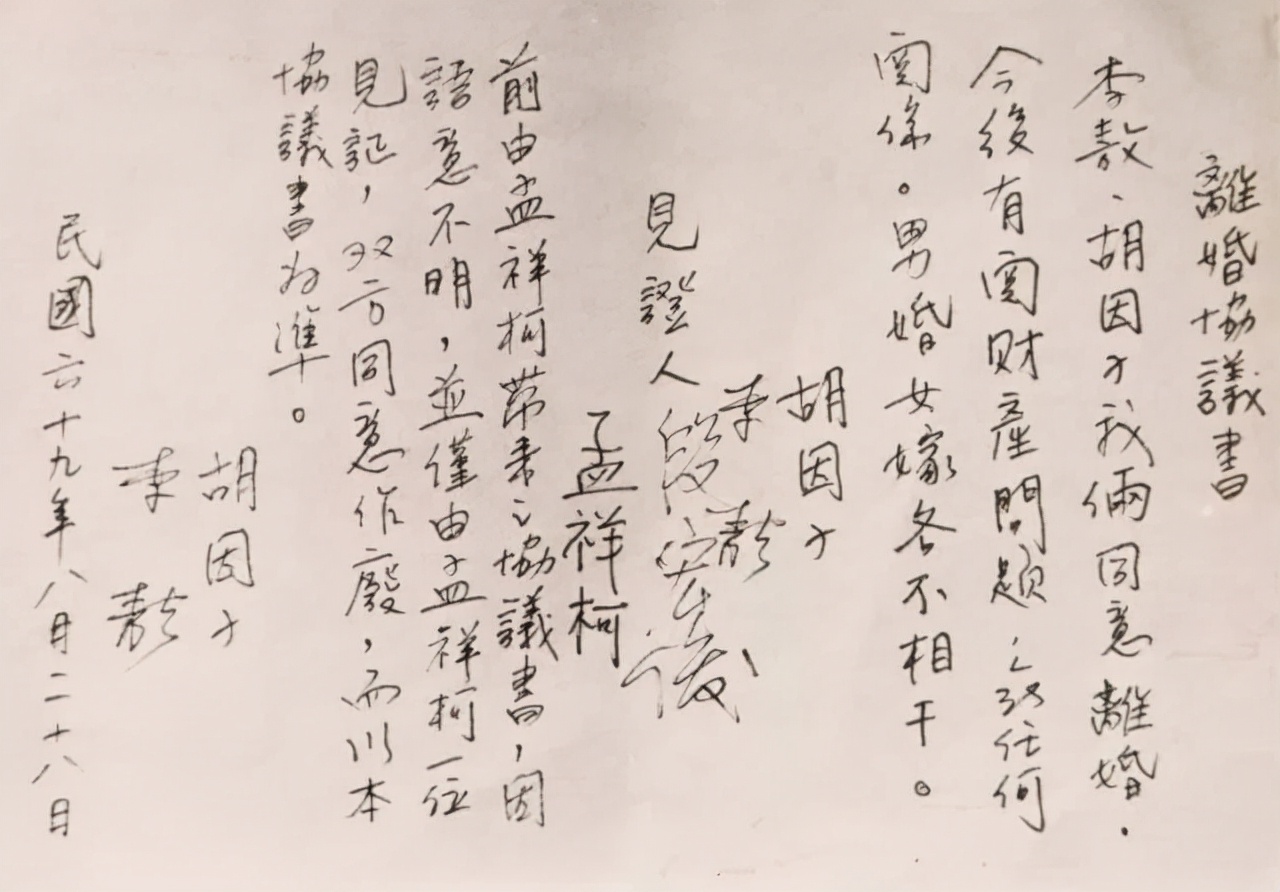 離婚協議書
李敖、胡因子我倆同意離婚.
今後有関財產問題之我任何
関係。男婚女嫁各不相干。
胡因子
李敖
見證人 段宏俊
孟祥柯
前由孟祥柯帶來之協議書,因
語意不明,並僅由孟祥柯一位
見証,双方同意作廢,而以本
協議書为準。
胡因子
李敖
民國六十九年八月二十八日